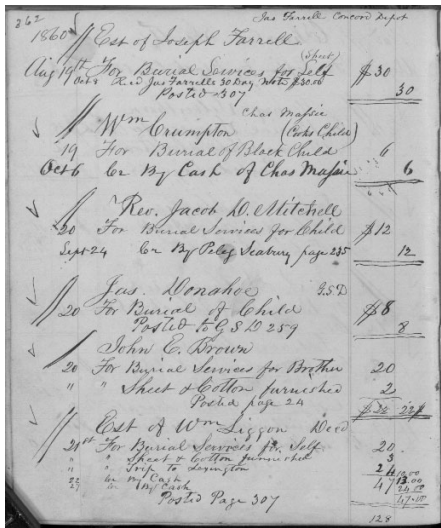 262
Jas Farrell Concord Depot
1860 Est of Joseph Farrell
(Sheet)
Aug 19th For Burial Services for Self $30
Oct 2 Rcd Jas Farrells 30 Day Note $30.00
Posted 307 30
Chas Massie
Wm Crumpton (Cooks Child)
19 For Burial of Black Child 6
Oct 6 Cr By Cash of Chas Massie 6
Rev. Jacob D. Mitchell
20 For Burial Services for Child $12
Sept 24 Cr By Peleg Seabury page 235 12
Jas. Donahoe G.S.D
20 For Burial of Child $8
Posted to G S D 259 8
John E. Brown
20 For Burial Services for Brother 20
" Sheet & Cotton furnished 2
Posted page 24 $22 22
Est of Wm Liggon Decd
21st For Burial Services for Self 20
" " Sheet & Cotton furnished 3
" " Trip to Lexington 24
22 Cr By Cash 47 13.00
27 Cr By Cash 24.00
Posted Page 307 47.00
128